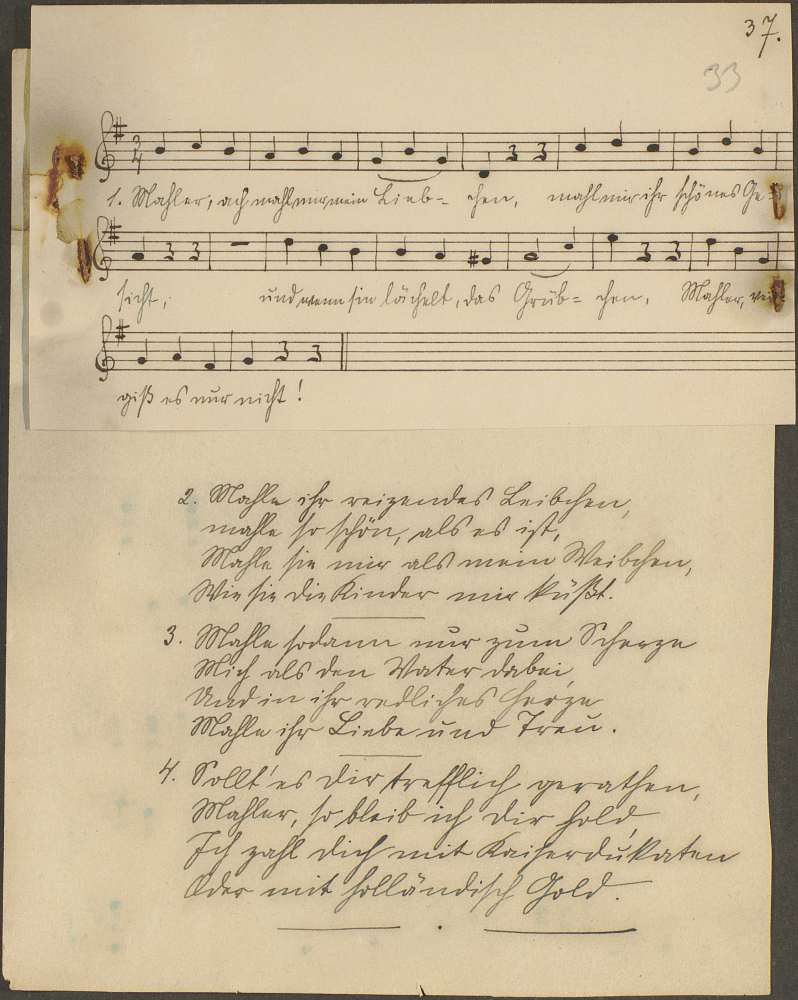 37.
33
3/4
1. Mahler, ach mahl mir mein Lieb= chen, mahl mir ihr schönes Ge=
sicht, und wenn sie lächelt, das Grüb= chen, Mahler, ver=
giß es nur nicht!
2. Mahle ihr reizendes Leibchen,
mahle so schön, als es ist,
Mahle sie mir als mein Weibchen,
Wie sie die Kinder mir küßt.
3. Mahle sodann nur zum Scherze
Mich als den Vater dabei,
Und in ihr redliches Herze
Mahle ihr Liebe und Treu.
4. Sollt' es dir trefflich gerathen,
Mahler, so bleib ich dir hold,
Ich zahl dich mit Kaiserdukaten
Oder mit holländisch Gold.